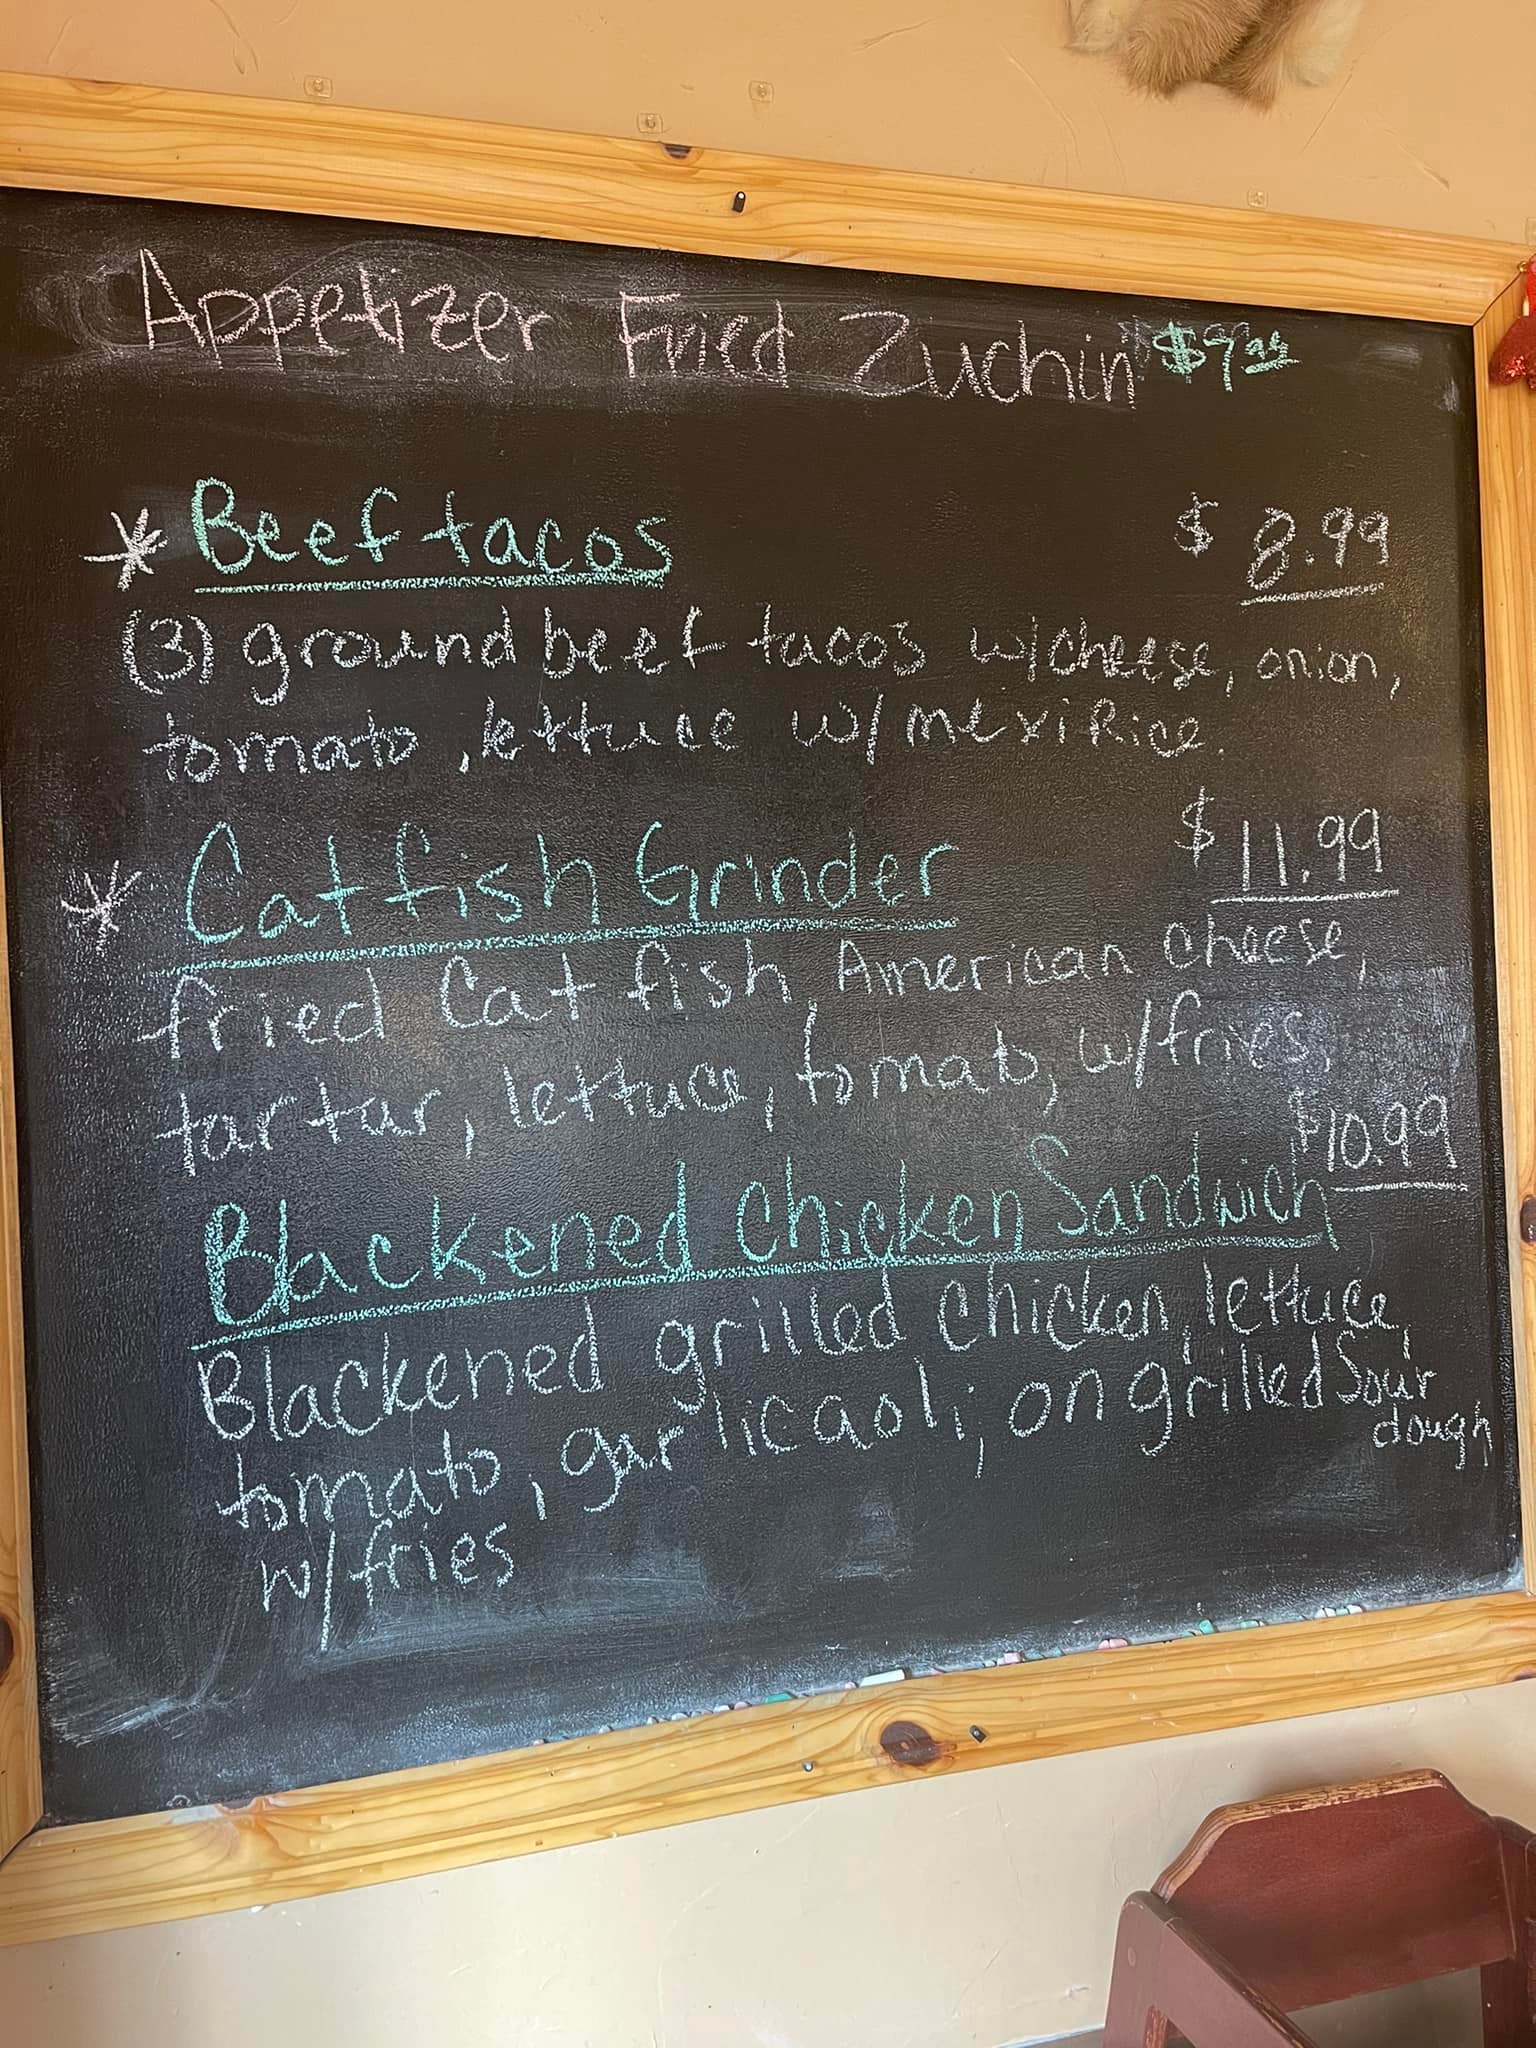 Appetizer Fried Zuchin $9.99
* Beef tacos $8.99
(3) ground beef tacos w/cheese, onion,
tomato, lettuce w/ mexi Rice.
* Catfish Grinder $11.99
fried Catfish, American cheese,
tartar, lettuce, tomato, w/fries.
Blackened Chicken Sandwich $10.99
Blackened grilled chicken, lettuce,
tomato, garlic aoli, on grilled Sour
dough
w/fries